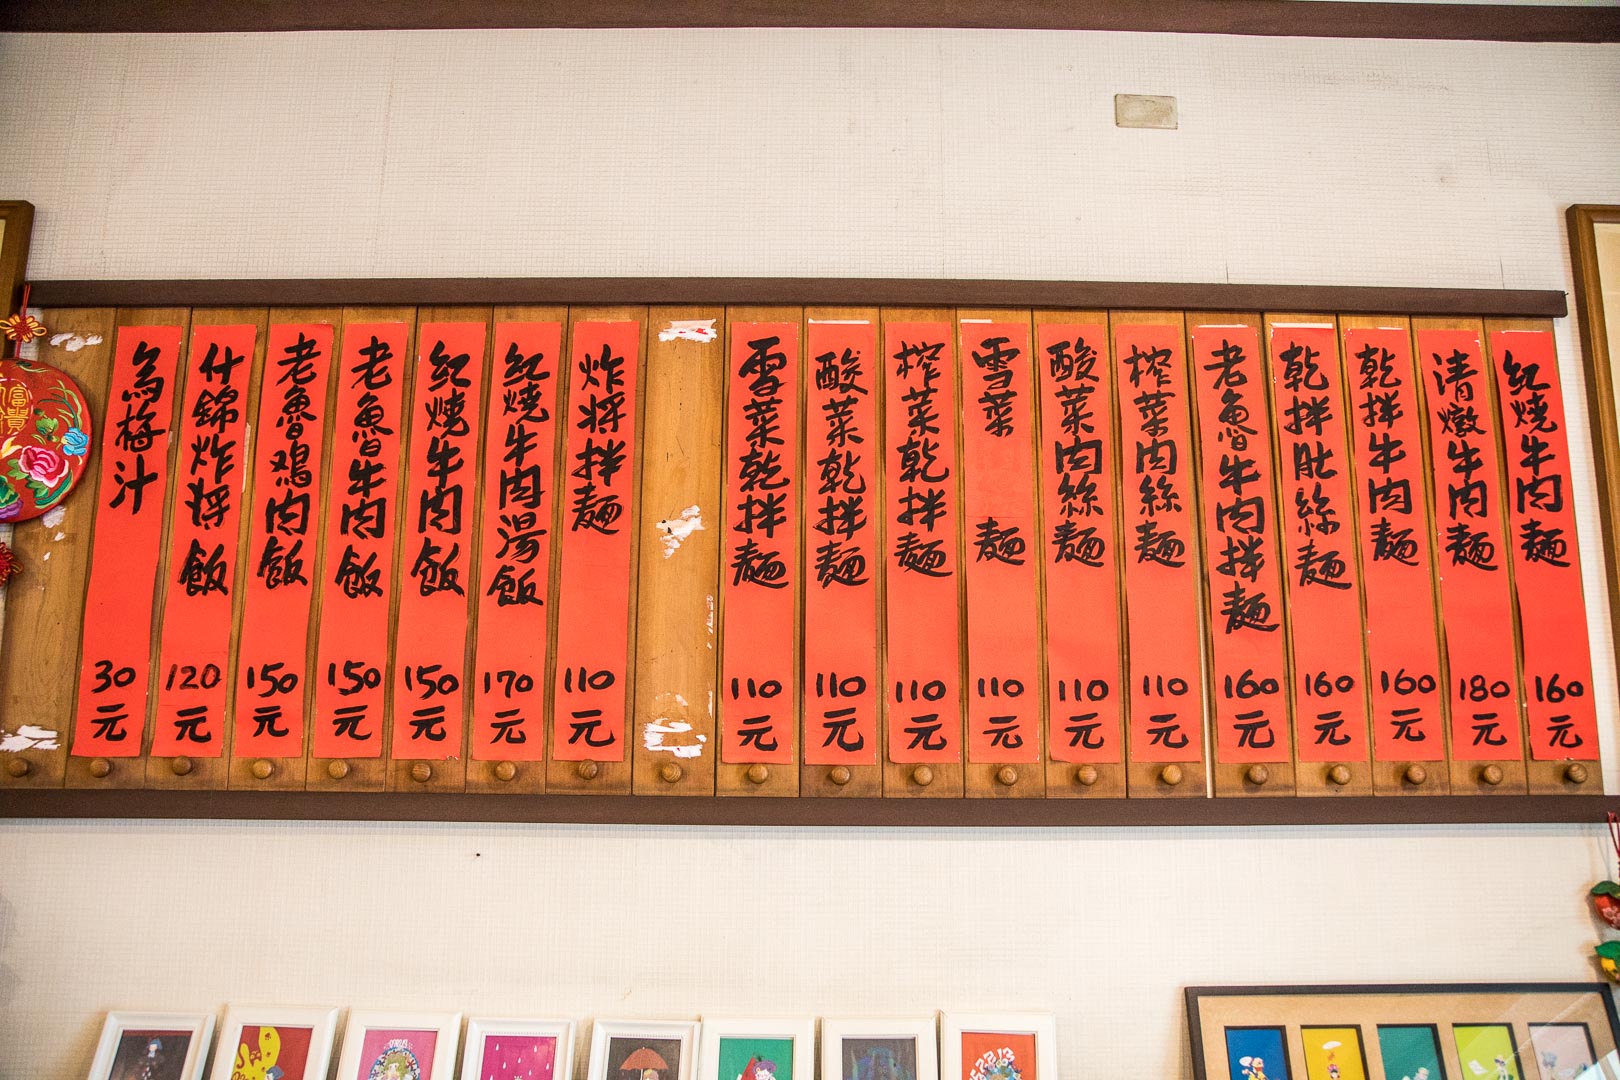 紅燒牛肉麵 160元
清燉牛肉麵 180元
乾拌牛肉麵 160元
乾拌肚絲麵 160元
老魯牛肉拌麵 160元
榨菜肉絲麵 110元
酸菜肉絲麵 110元
雪菜 麵 110元
榨菜乾拌麵 110元
酸菜乾拌麵 110元
雪菜乾拌麵 110元
炸將拌麵 110元
紅燒牛肉湯飯 170元
紅燒牛肉飯 150元
老魯牛肉飯 150元
老魯鷄肉飯 150元
什錦炸將飯 120元
烏梅汁 30元
富貴